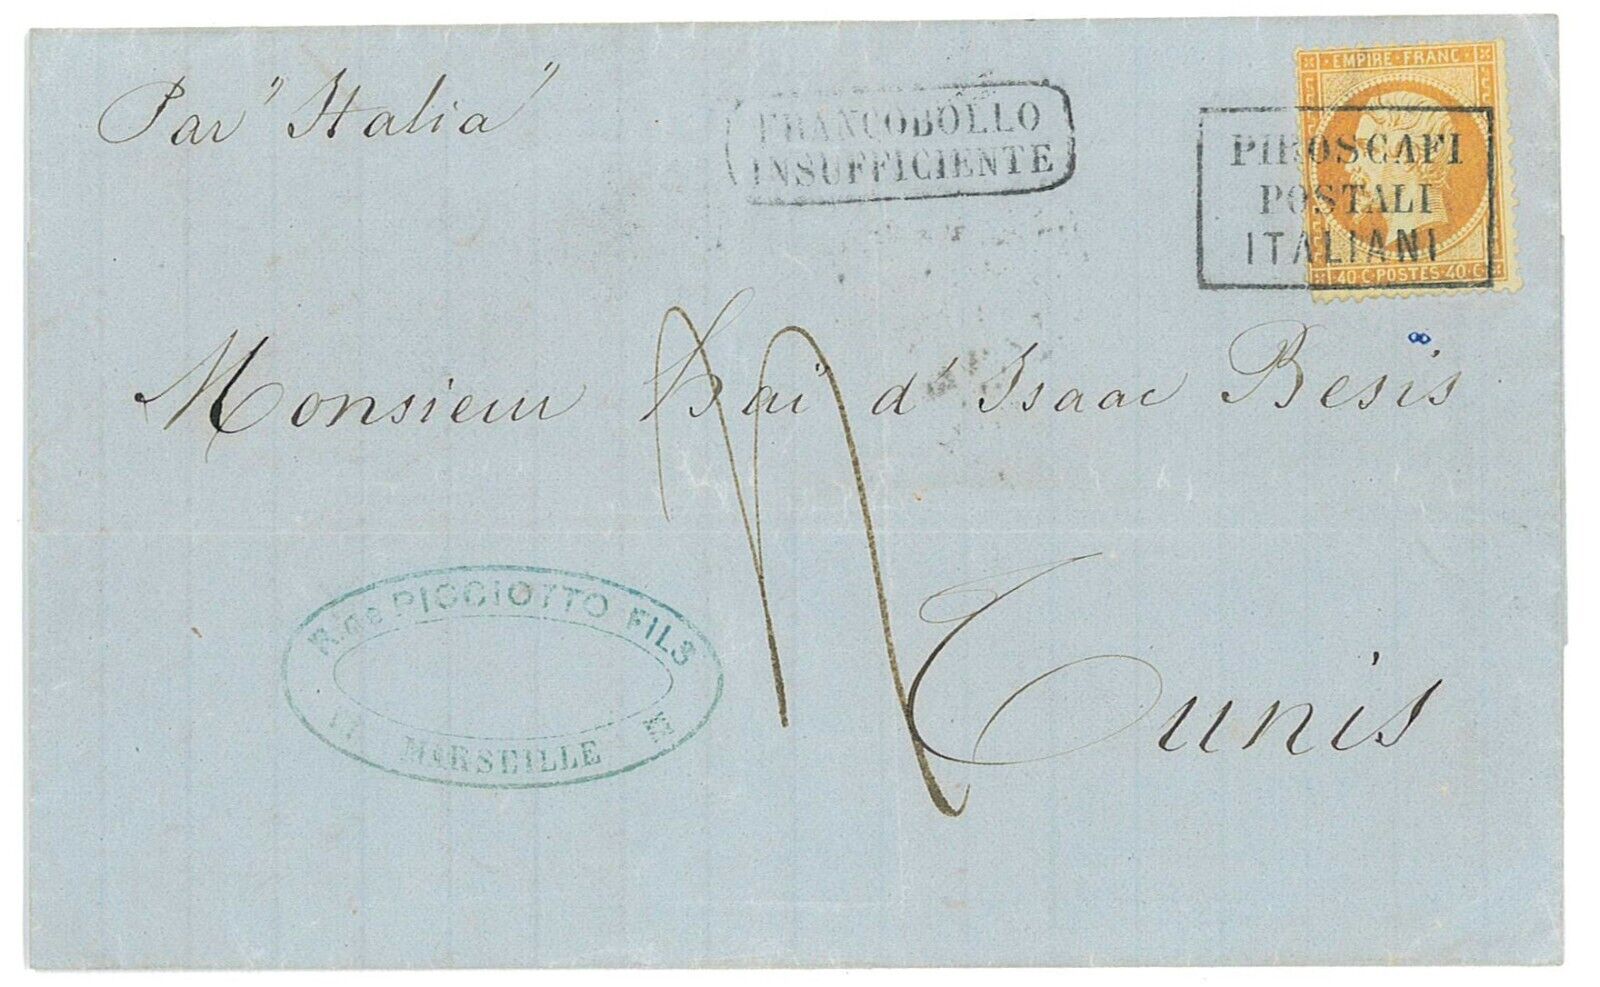 Par "Italia"
FRANCOBOLLO
INSUFFICIENTE
EMPIRE·FRANC
PIROSCAFI
POSTALI
ITALIANI
40·C·POSTES·40·C
Monsieur Haï d'Isaac Besis
Tunis
R. de PICCIOTTO FILS
MARSEILLE